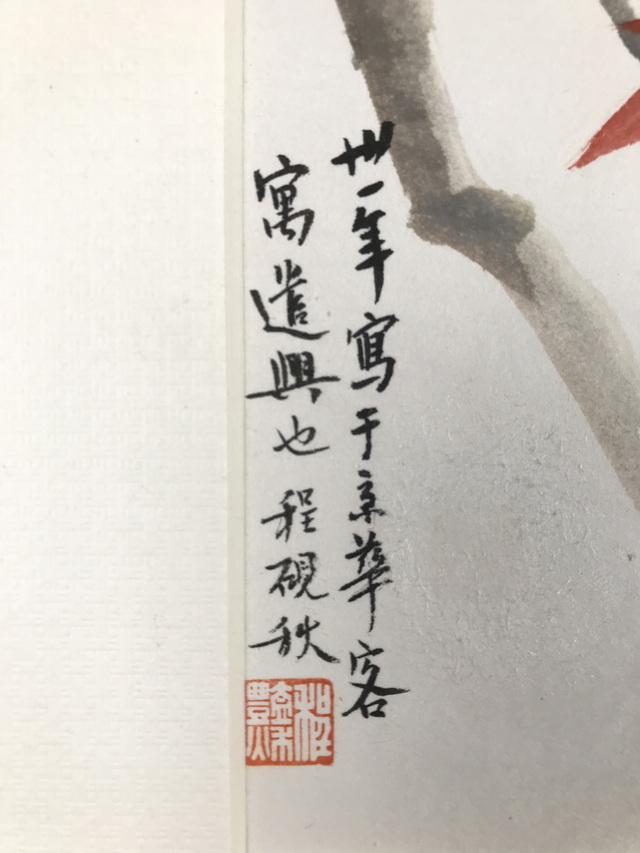 卅一年寫于京華客
寓遣興也 程硯秋
程豔秋